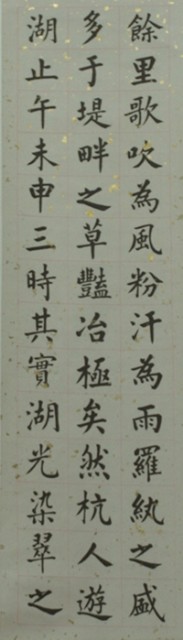 餘里歌吹為風粉汗為雨羅紈之盛
多于堤畔之草豔冶極矣然杭人遊
湖止午未申三時其實湖光染翠之